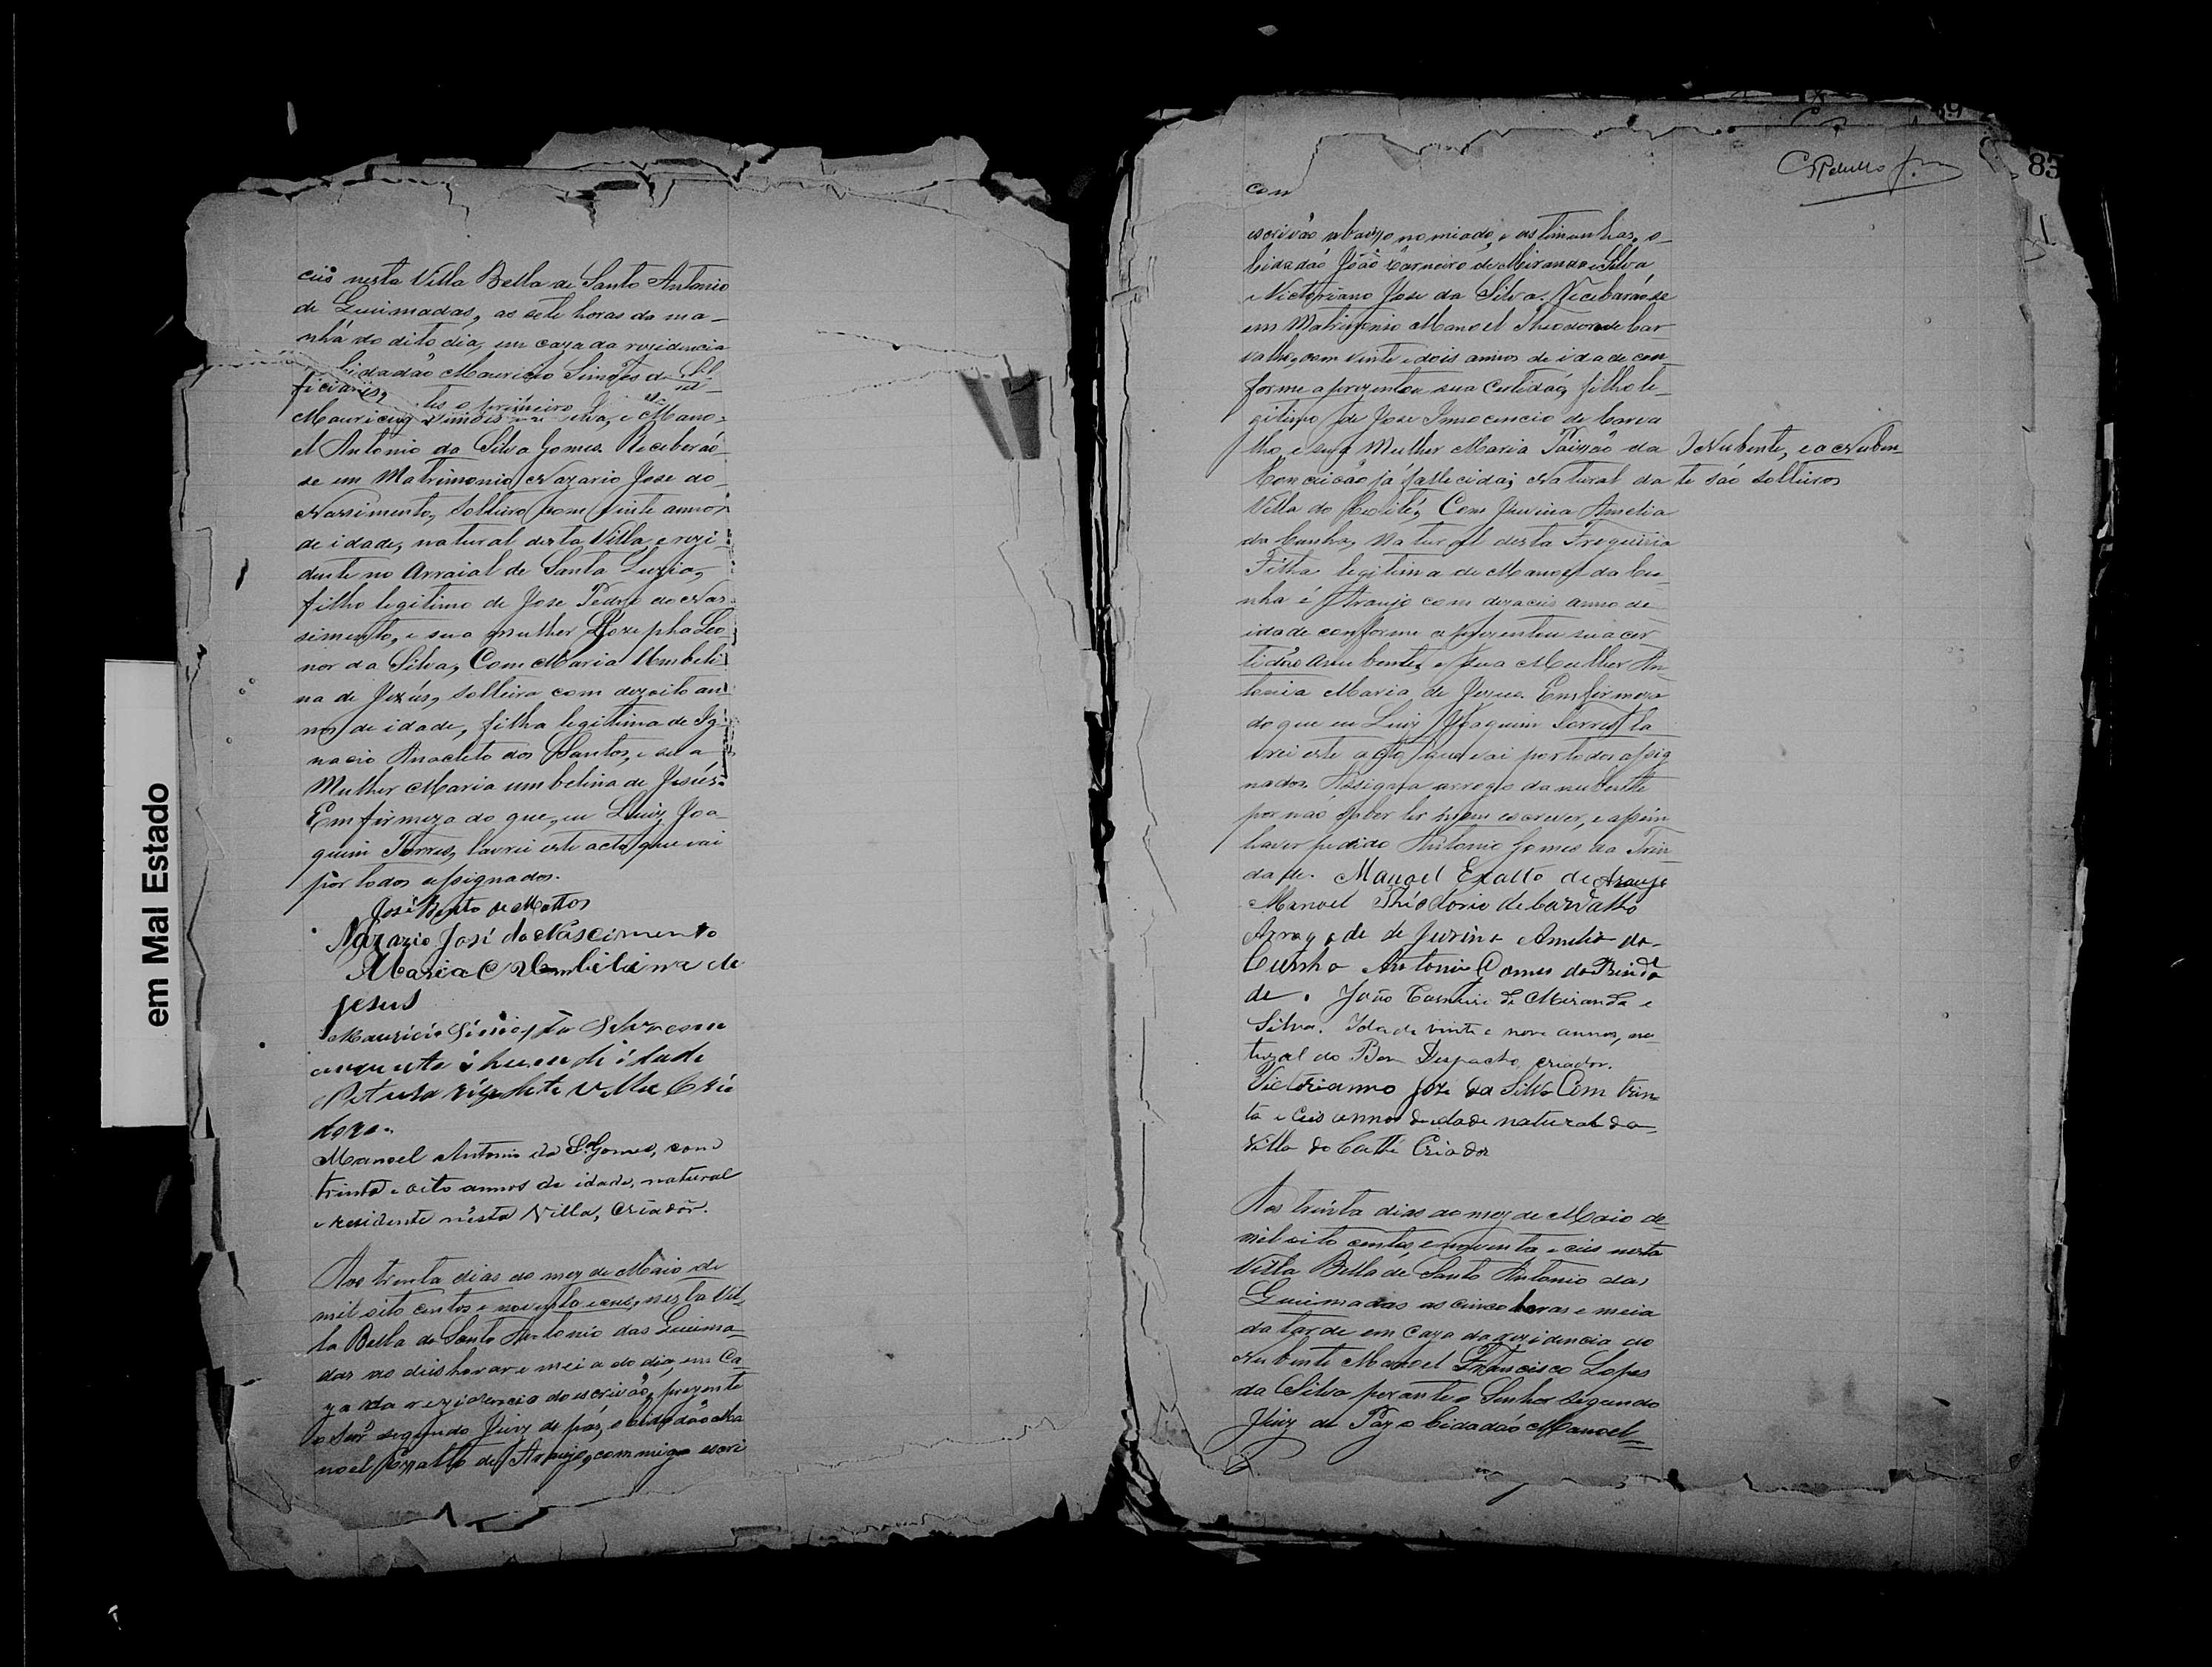 em Mal Estado
ceis nesta Villa Bella de Santo Antonio
de Queimadas, as sete horas da ma-
nhã do dito dia, em caza da rezidencia
Cidadão Mauricio Simões da Sil
ficiaes,
tes o primeiro
Mauricio Simões da Silva, e Mano-
el Antonio da Silva Gomes. Receberão-
se em Matrimonio Nazario Jose do
Nassimento, Solteiro com vinte annos
de idade, natural desta Villa e rezi-
dente no Arraial de Santa Luzia,
filho legitimo de Jose Pedro do Nas-
simento, e sua mulher Jozepha Leo-
nor da Silva, Com Maria Umbeli-
na de Jezús, solteira com dezoito an-
nos de idade, filha legitima de Ig-
nacio Anacleto dos Santos, e sua
Mulher Maria umbelina de Jesús.
Em firmeza do que, eu Luiz Joa-
quim Torres, lavrei este acto que vai
por todos assignados.
José Bento de Mattos
Nazario José do Nascimento
Maria Umbilina de
Jesus
Mauricio Simões da Silva com
cincuenta i hum de idade
Villa Cria
dor.
Manoel Antonio da Sª Gomes, com
trinta e oito annos de idade, natural
e residente nésta Villa, Criadôr.
Aos trinta dias do mez de Maio de
mil oito centos e noventa e ceis, nesta Vil-
la Bella de Santo Antonio das Queima-
das as dois horas e meia do dia, em Ca-
za da rezidencia do escrivão, prezente
o Senr segundo Juiz de páz, o Cidadão Ma
noel Exalto de Araujo, commigo escri
83
com
escrivão abaixo nomiado, e as timunhas, o
Cidadão João Carneiro de Miranda e Silva
e Victoriano Jose da Silva. Receberão-se
em Matrimonio Manoel Theodoro de Car
valho, com vinte e dois annos de idade con
forme aprezentou sua Certidão, filho le-
gitimo de Jose Innocencio de Carva
lho, e sua Mulher Maria Paixão da
Conceicão já fallecida; Natural da
O Nubente, e a Nuben
te são solteiros
Villa do Coité, Com Juvina Amelia
da Cunha, Natural desta Freguizia
Filha legitima de Manoel da Cu-
nha é Araujo com dezaceis anno de
idade conforme aprezentou sua cer
tidão anubente, e sua Mulher An
tonia Maria de Jezus. Em firmeza
do que eu Luiz Joaquim Torres la
vrei este acto que vai por todos assig
nados. Assigna arrogo da nubente
por não saber ler nem escrever, e assim
haver pedido Antonio Gomes da Trin
dade. Manoel Exalto de Araujo
Manoel Théodorio de Carvalho
Arrogo de de Juvina Amelia da
Cunha Antonio Gomes da Trinda
de. João Carneiro de Miranda e
Silva. Idade vinte e nove annos, na
tural do Bom Despacho, criador.
Victorianno José da Silva Com trin
ta e Ceis annos de idade natural da
Villa do Coithé Criador
Aos trinta dias do mez de Maio de
mil oito centos, e noventa e ceis nesta
Villa Bella de Santo Antonio das
Queimadas as cinco horas e meia
da tarde em Caza da rezidencia do
Nubente Manoel Francisco Lopes
da Silva perante o Senhor segundo
Juiz de Paz o Cidadão Manoel